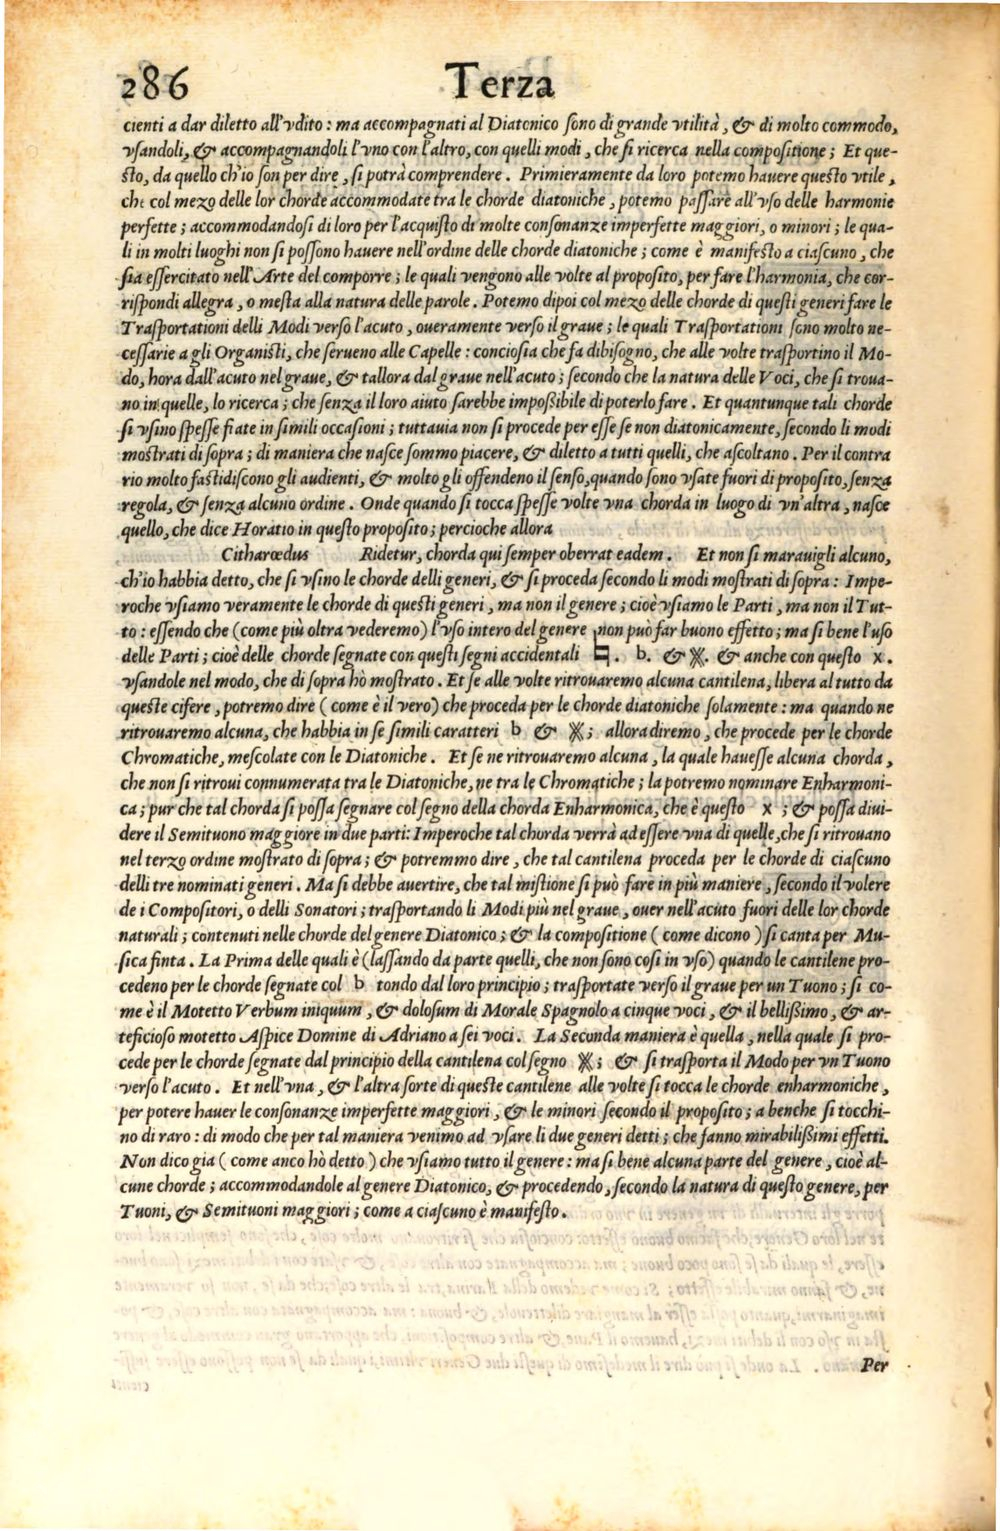 286 Terza
cienti a dar diletto all'vdito : ma accompagnati al Diatonico ſono di grande vtilità, & di molto commodo,
vſandoli, & accompagnandoli l'vno con l'altro, con quelli modi, che ſi ricerca nella compoſitione ; Et que-
ſto, da quello ch'io ſon per dire, ſi potrà comprendere. Primieramente da loro potemo hauere queſto vtile,
che col mezo delle lor chorde accommodate tra le chorde diatoniche, potemo paſſare all'vſo delle harmonie
perfette ; accommodandoſi di loro per l'acquiſto di molte conſonanze imperfette maggiori, o minori ; le qua-
li in molti luoghi non ſi poſſono hauere nell'ordine delle chorde diatoniche ; come è manifeſto a ciaſcuno, che
ſia eſſercitato nell'Arte del comporre ; le quali vengono alle volte al propoſito, per fare l'harmonia, che cor-
riſpondi allegra, o meſta alla natura delle parole. Potemo dipoi col mezo delle chorde di queſti generi fare le
Traſportationi delli Modi verſo l'acuto, oueramente verſo il graue ; le quali Traſportationi ſono molto ne-
ceſſarie a gli Organiſti, che ſerueno alle Capelle : concioſia che fa dibiſogno, che alle volte traſportino il Mo-
do, hora dall'acuto nel graue, & tallora dal graue nell'acuto ; ſecondo che la natura delle Voci, che ſi troua-
no in quelle, lo ricerca ; che ſenza il loro aiuto ſarebbe impoßibile di poterlo fare. Et quantunque tali chorde
ſi vſino ſpeſſe fiate in ſimili occaſioni ; tuttauia non ſi procede per eſſe ſe non diatonicamente, ſecondo li modi
moſtrati di ſopra ; di maniera che naſce ſommo piacere, & diletto a tutti quelli, che aſcoltano. Per il contra
rio molto faſtidiſcono gli audienti, & molto gli offendeno il ſenſo, quando ſono vſate fuori di propoſito, ſenza
regola, & ſenza alcuno ordine. Onde quando ſi tocca ſpeſſe volte vna chorda in luogo di vn'altra, naſce
quello, che dice Horatio in queſto propoſito ; percioche allora
Citharœdus Ridetur, chorda qui ſemper oberrat eadem. Et non ſi marauigli alcuno,
ch'io habbia detto, che ſi vſino le chorde delli generi, & ſi proceda ſecondo li modi moſtrati di ſopra : Impe-
roche vſiamo veramente le chorde di queſti generi, ma non il genere ; cioè vſiamo le Parti, ma non il Tut-
to : eſſendo che (come più oltra vederemo) l'vſo intero del genere non può far buono effetto ; ma ſi bene l'uſo
delle Parti ; cioè delle chorde ſegnate con queſti ſegni accidentali ♮. b. & ※. & anche con queſto x.
vſandole nel modo, che di ſopra hò moſtrato. Et ſe alle volte ritrouaremo alcuna cantilena, libera al tutto da
queſte cifere, potremo dire ( come è il vero) che proceda per le chorde diatoniche ſolamente : ma quando ne
ritrouaremo alcuna, che habbia in ſe ſimili caratteri b & ※ ; allora diremo, che procede per le chorde
Chromatiche, meſcolate con le Diatoniche. Et ſe ne ritrouaremo alcuna, la quale haueſſe alcuna chorda,
che non ſi ritroui connumerata tra le Diatoniche, ne tra le Chromatiche ; la potremo nominare Enharmoni-
ca ; pur che tal chorda ſi poſſa ſegnare col ſegno della chorda Enharmonica, che è queſto x ; & poſſa diui-
dere il Semituono maggiore in due parti: Imperoche tal chorda verrà ad eſſere vna di quelle, che ſi ritrouano
nel terzo ordine moſtrato di ſopra ; & potremmo dire, che tal cantilena proceda per le chorde di ciaſcuno
delli tre nominati generi. Ma ſi debbe auertire, che tal miſtione ſi può fare in più maniere, ſecondo il volere
de i Compoſitori, o delli Sonatori ; traſportando li Modi più nel graue, ouer nell'acuto fuori delle lor chorde
naturali ; contenuti nelle chorde del genere Diatonico ; & la compoſitione ( come dicono ) ſi canta per Mu-
ſica finta. La Prima delle quali è (laſſando da parte quelli, che non ſono coſi in vſo) quando le cantilene pro-
cedeno per le chorde ſegnate col b tondo dal loro principio ; traſportate verſo il graue per un Tuono ; ſi co-
me è il Motetto Verbum iniquum, & doloſum di Morale Spagnolo a cinque voci, & il belliſſimo, & ar-
teficioſo motetto Aſpice Domine di Adriano a ſei voci. La Seconda maniera è quella, nella quale ſi pro-
cede per le chorde ſegnate dal principio della cantilena col ſegno ※ ; & ſi traſporta il Modo per vn Tuono
verſo l'acuto. Et nell'vna, & l'altra ſorte di queſte cantilene alle volte ſi tocca le chorde enharmoniche,
per potere hauer le conſonanze imperfette maggiori, & le minori ſecondo il propoſito ; a benche ſi tocchi-
no di raro : di modo che per tal maniera venimo ad vſare li due generi detti ; che fanno mirabilißimi effetti.
Non dico gia ( come anco hò detto ) che vſiamo tutto il genere : ma ſi bene alcuna parte del genere, cioè al-
cune chorde ; accommodandole al genere Diatonico, & procedendo, ſecondo la natura di queſto genere, per
Tuoni, & Semituoni maggiori ; come a ciaſcuno è manifeſto.
Per